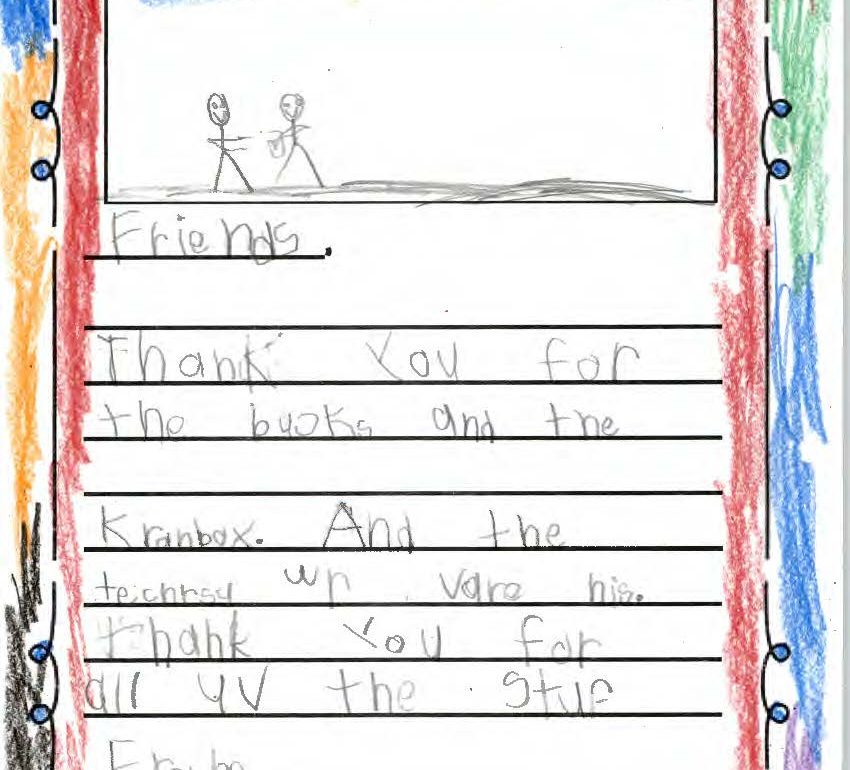 Friends.
Thank You for
the buoks and the
Kranbox. And the
techrsy wr vare nis.
thank You for
all uv the stuf